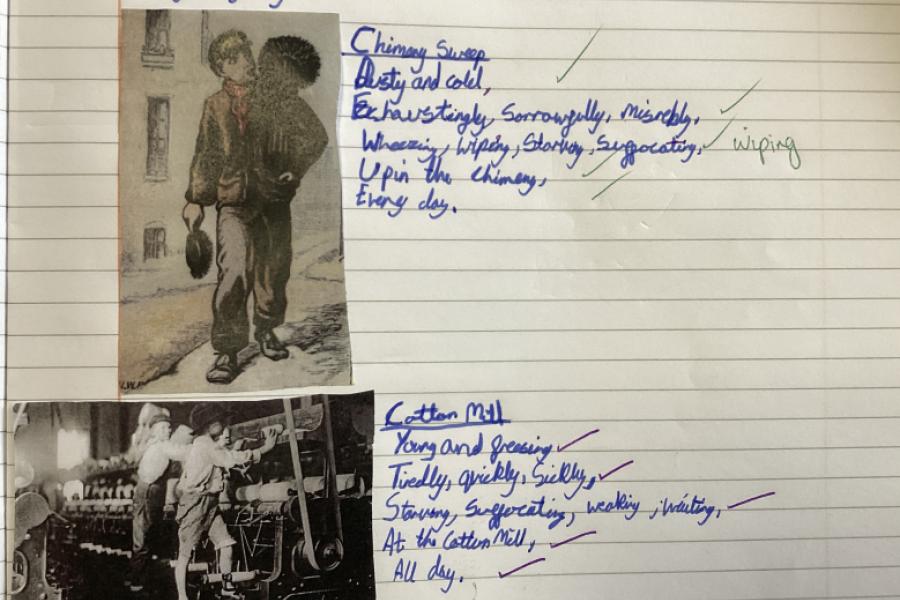 Chimeny Sweep
Dusty and cold,
Exhaustingly, Sorrowfully, Misrebly,
Wheezing, Wiping, Starving, Suffocating, wiping
Up in the chimeny,
Every day.
Cotton Mill
Young and freezing
Tiredly, quickly, Sickly,
Starving, Suffocating, weaking, waiting,
At the Cotton Mill,
All day.